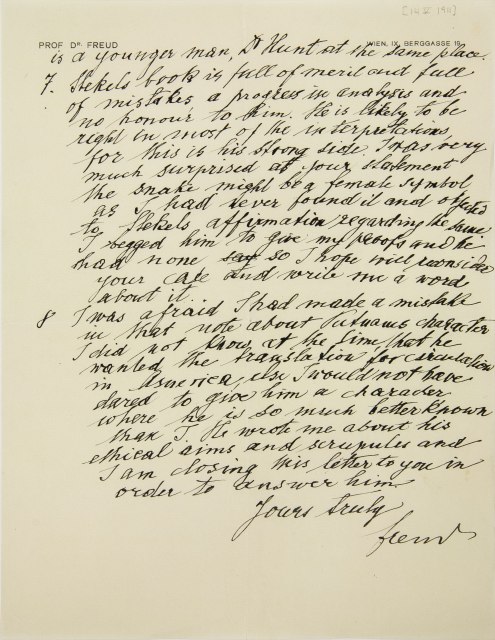 [14 V 1911]
PROF. DR. FREUD
WIEN, IX. BERGGASSE 19.
is a younger man, Dr Hunt at the same place.
7. Stekels book is full of merit and full
of mistakes, a progress in analysis and
no honour to him. He is likely to be
right in most of the interpretations,
for this is his strong side. I was very
much surprised at your statement
the snake might be a female symbol
as I had never found it and objected
to Stekels affirmation regarding the same
I begged him to give my proofs and he
had none so I hope will reconsider
your case and write me a word
about it.
8 I was afraid I had made a mistake
in that note about Putnams character
I did not know, at the time that he
wanted the translation for circulation
in America, else I would not have
dared to give him a character
where he is so much better known
than I. He wrote me about his
ethical aims and scruples and
I am closing this letter to you in
order to answer him
Yours truly
Freud